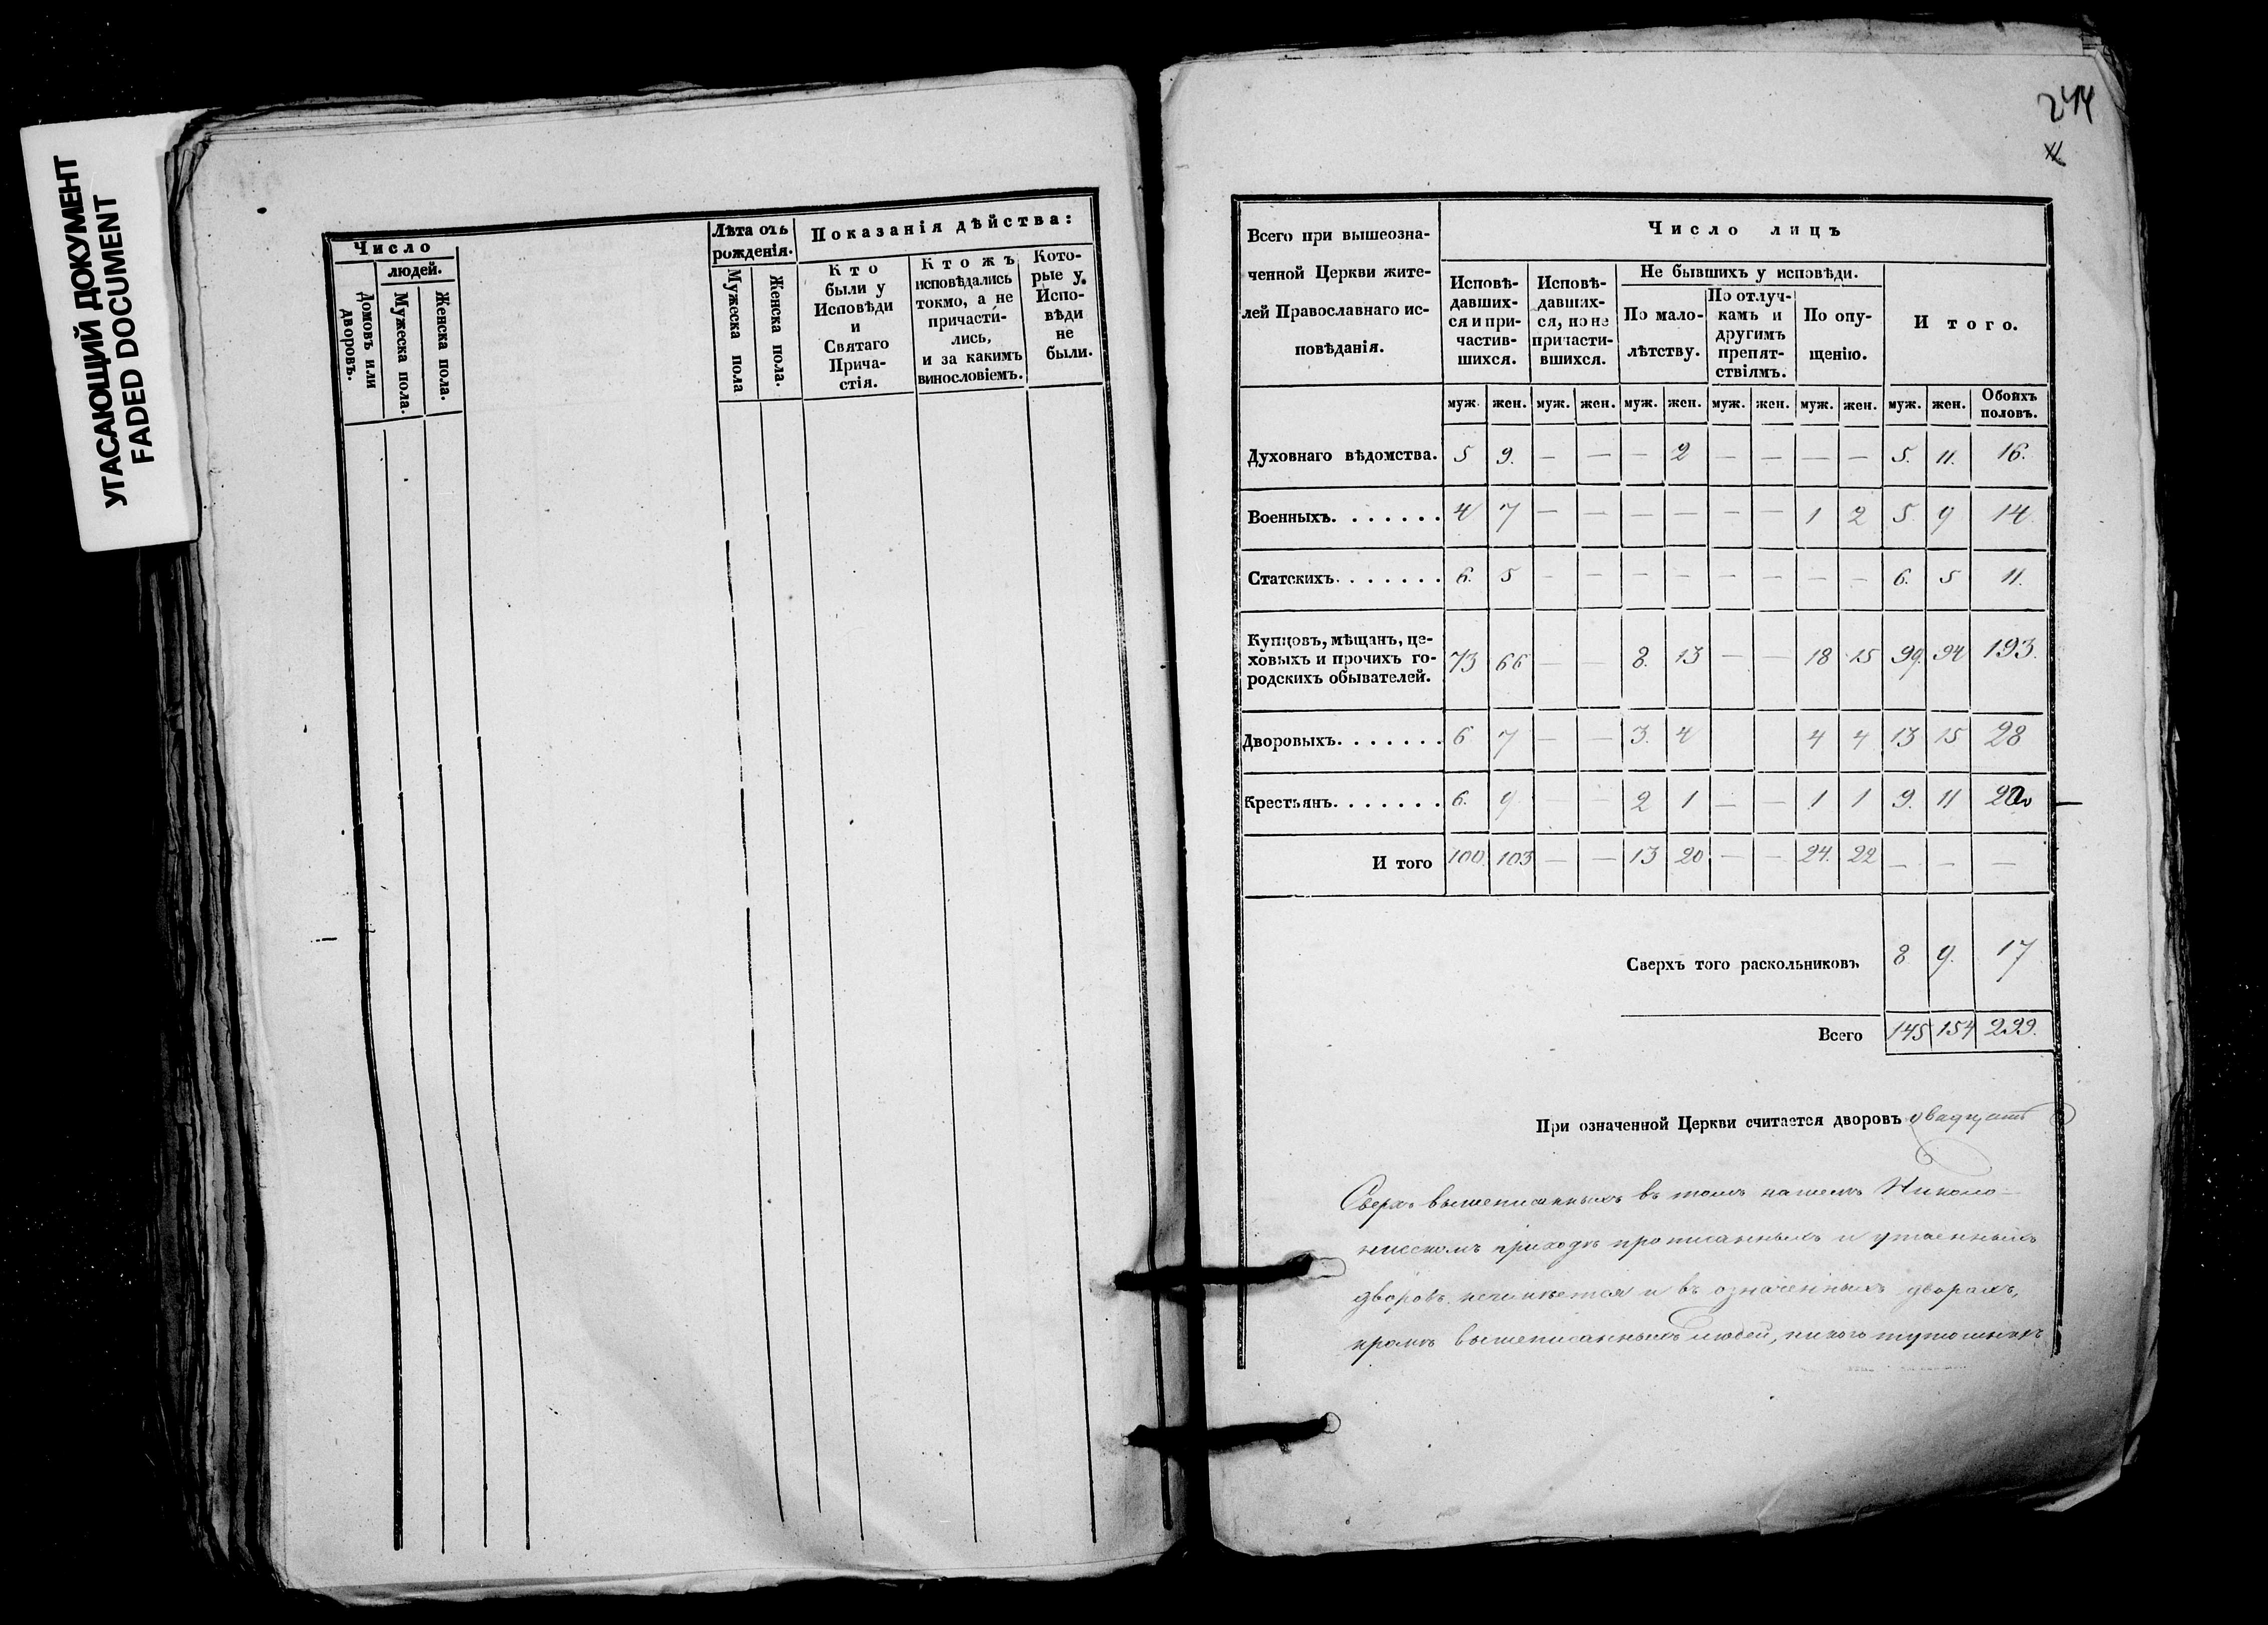 УГАСАЮЩИЙ ДОКУМЕНТ
FADED DOCUMENT
Число
людей.
Домовъ или дворовъ.
Мужеска пола.
Женска пола.
Лѣта отъ
рожденія.
Мужеска пола
Женска пола.
Показанія дѣйства:
Кто
были у
Исповѣди
и
Святаго
Прича-
стія.
Ктожъ
исповѣдались
токмо, а не
причасти-
лись,
и за какимъ
винословіемъ.
Кото-
рые у
Испо-
вѣди
не
были.
244
Всего при вышеозна-
ченной Церкви жите-
лей Православнаго ис-
повѣданія.
Число лицъ
Исповѣ-
давших-
ся и при-
частив-
шихся.
Исповѣ-
давших-
ся, но не
причасти-
вшихся.
Не бывшихъ у исповѣди.
По мало-
лѣтству.
По отлуч-
камъ и
другимъ
препят-
ствіямъ.
По опу-
щенію.
Итого.
муж. жен. муж. жен. муж. жен. муж. жен. муж. жен. муж. жен. Обоихъ половъ.
Духовнаго вѣдомства. 5 9. — — — 2 — — — — 5. 11. 16.
Военныхъ. . . . . . . 4 7 — — — — — — 1 2 5. 9 14.
Статскихъ. . . . . . . 6. 5 — — — — — — — — 6. 5 11.
Купцовъ, мѣщанъ, це-
ховыхъ и прочихъ го-
родскихъ обывателей.
73 66 — — 8. 13 — — 18 15 99. 94 193.
Дворовыхъ. . . . . . . 6 7 — — 3. 4 4 4 13 15 28
Крестьянъ. . . . . . . 6. 9 — — 2 1 — — 1 1 9. 11 20
И того 100. 103 — — 13 20 — — 24. 22 — — —
Сверхъ того раскольниковъ 8 9. 17
Всего 145 154 299.
При означенной Церкви считается дворовъ двадцать
Сверхъ вышеписанныхъ въ томъ нашемъ Николо-
приходѣ прописанныхъ и утаенныхъ
дворовъ неимѣется и въ означенныхъ дворахъ,
кромѣ вышеписанныхъ людей, никого